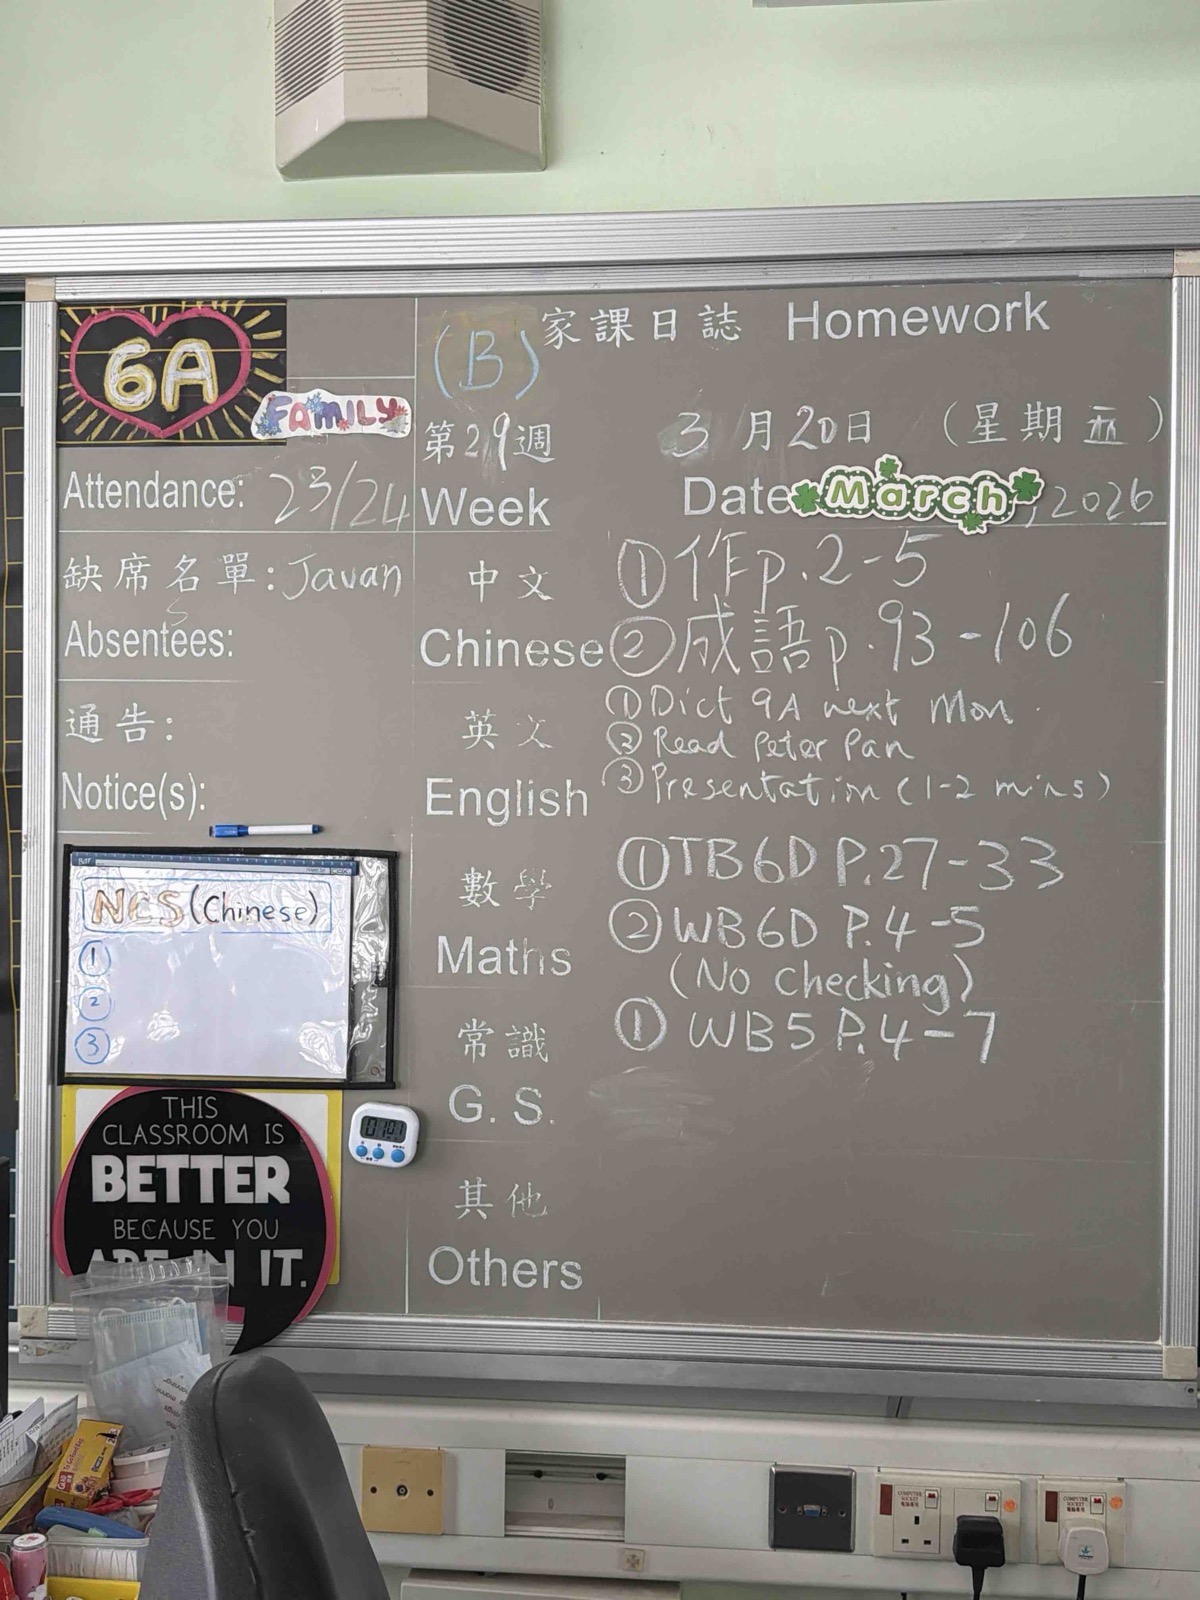 6A
FAMILY
(B) 家課日誌 Homework
第29週 3月20日 (星期五)
Attendance: 23/24
Week
Date March, 2026
缺席名單: Javan
Absentees:
通告:
Notice(s):
中文
Chinese
① 作p.2-5
② 成語p.93-106
英文
English
① Dict 9A next Mon.
② Read Peter Pan
③ Presentation (1-2 mins)
數學
Maths
① TB6D P.27-33
② WB6D P.4-5
(No Checking)
常識
G. S.
① WB5 P.4-7
其他
Others
NCS (Chinese)
①
②
③
THIS
CLASSROOM IS
BETTER
BECAUSE YOU
ARE IN IT.
COMPUTER
SOCKET
COMPUTER
SOCKET